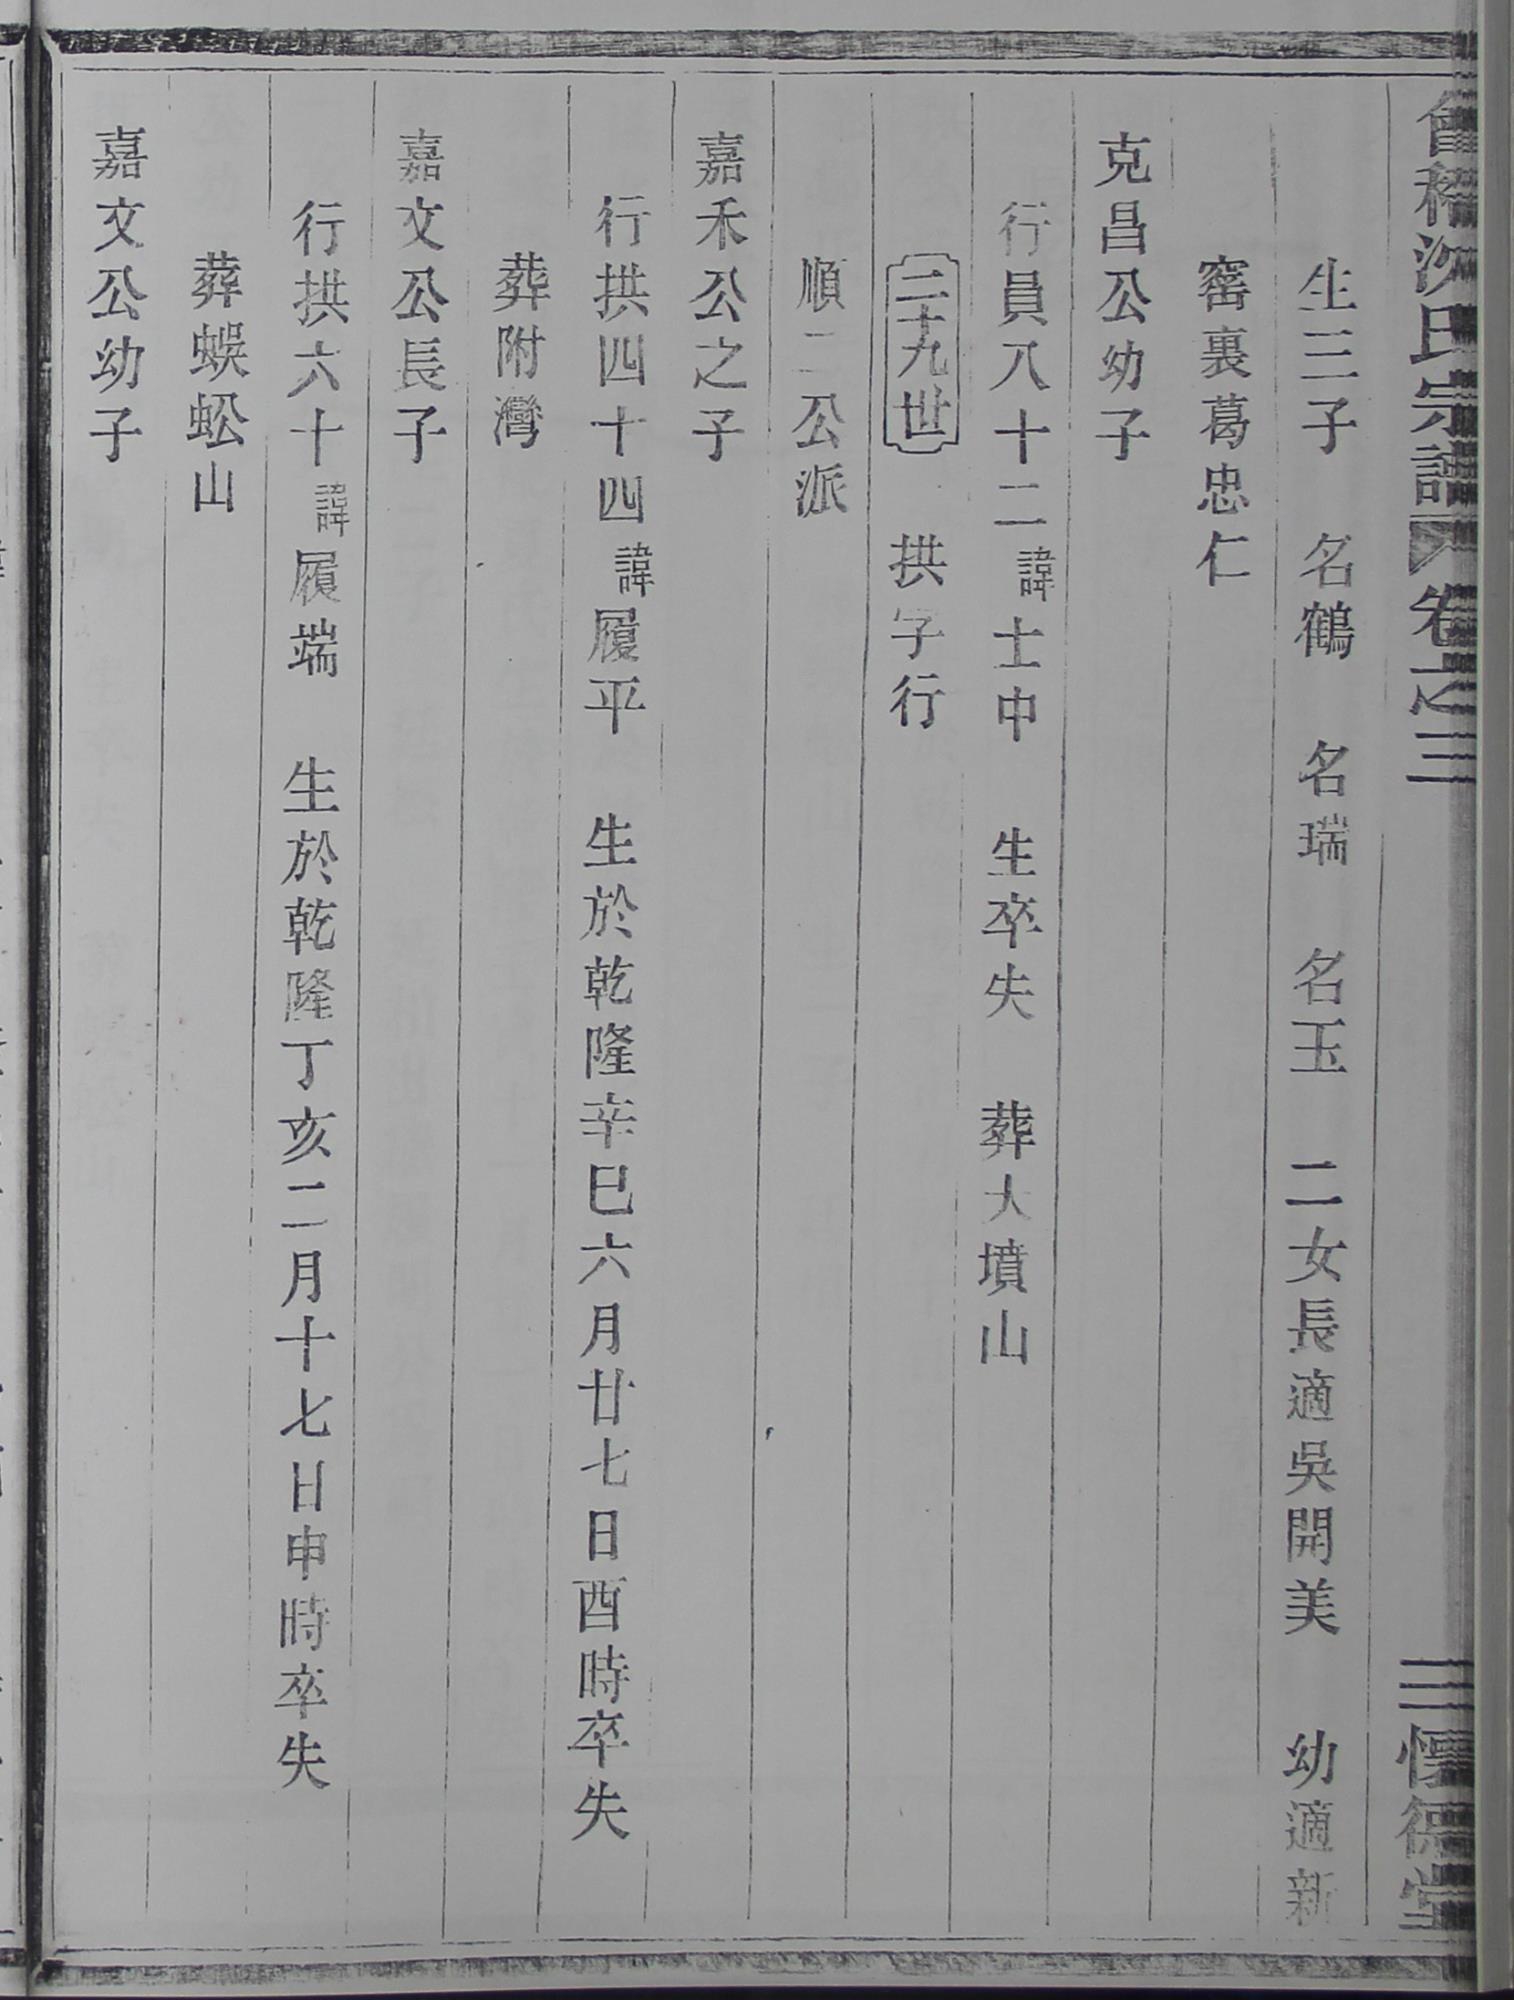 會稽沈氏宗譜 卷之三 三 懷德堂
生三子 名鶴 名瑞 名玉 二女長適吳開美 幼適新
窰裏葛忠仁
克昌公幼子
行員八十二諱士中 生卒失 葬大墳山
二十九世 拱字行
順二公派
嘉禾公之子
行拱四十四諱履平 生於乾隆辛巳六月廿七日酉時卒失
葬附灣
嘉文公長子
行拱六十諱履端 生於乾隆丁亥二月十七日申時卒失
葬蜈蚣山
嘉文公幼子